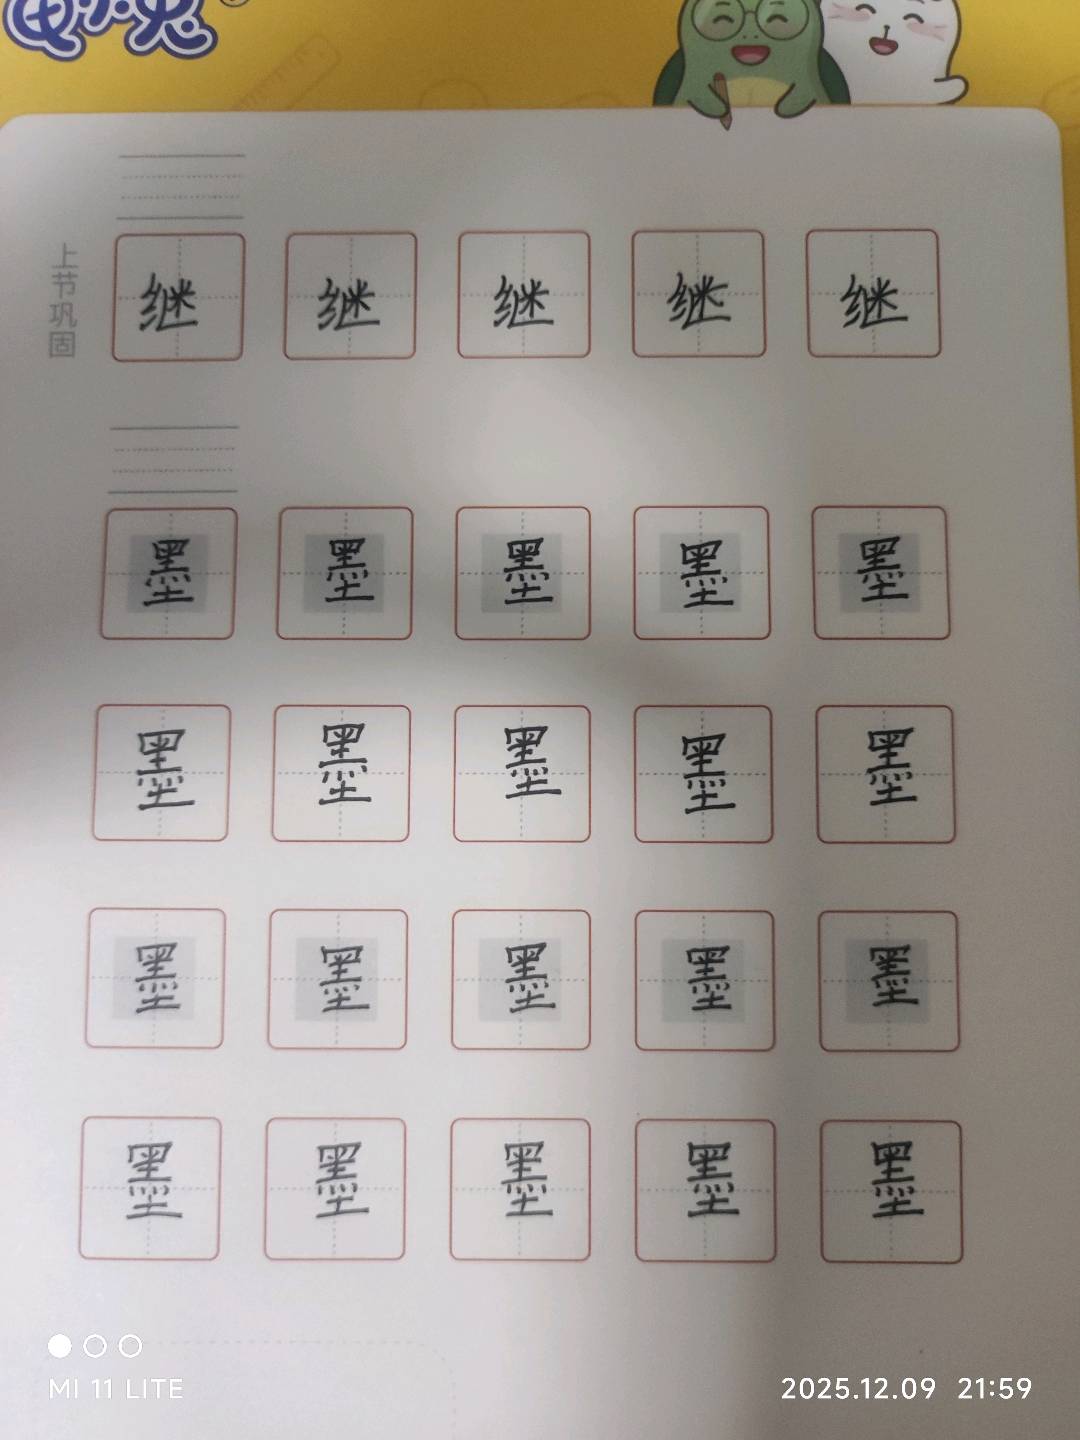 上节巩固
继 继 继 继 继
墨 墨 墨 墨 墨
墨 墨 墨 墨 墨
墨 墨 墨 墨 墨
墨 墨 墨 墨 墨
MI 11 LITE
2025.12.09 21:59